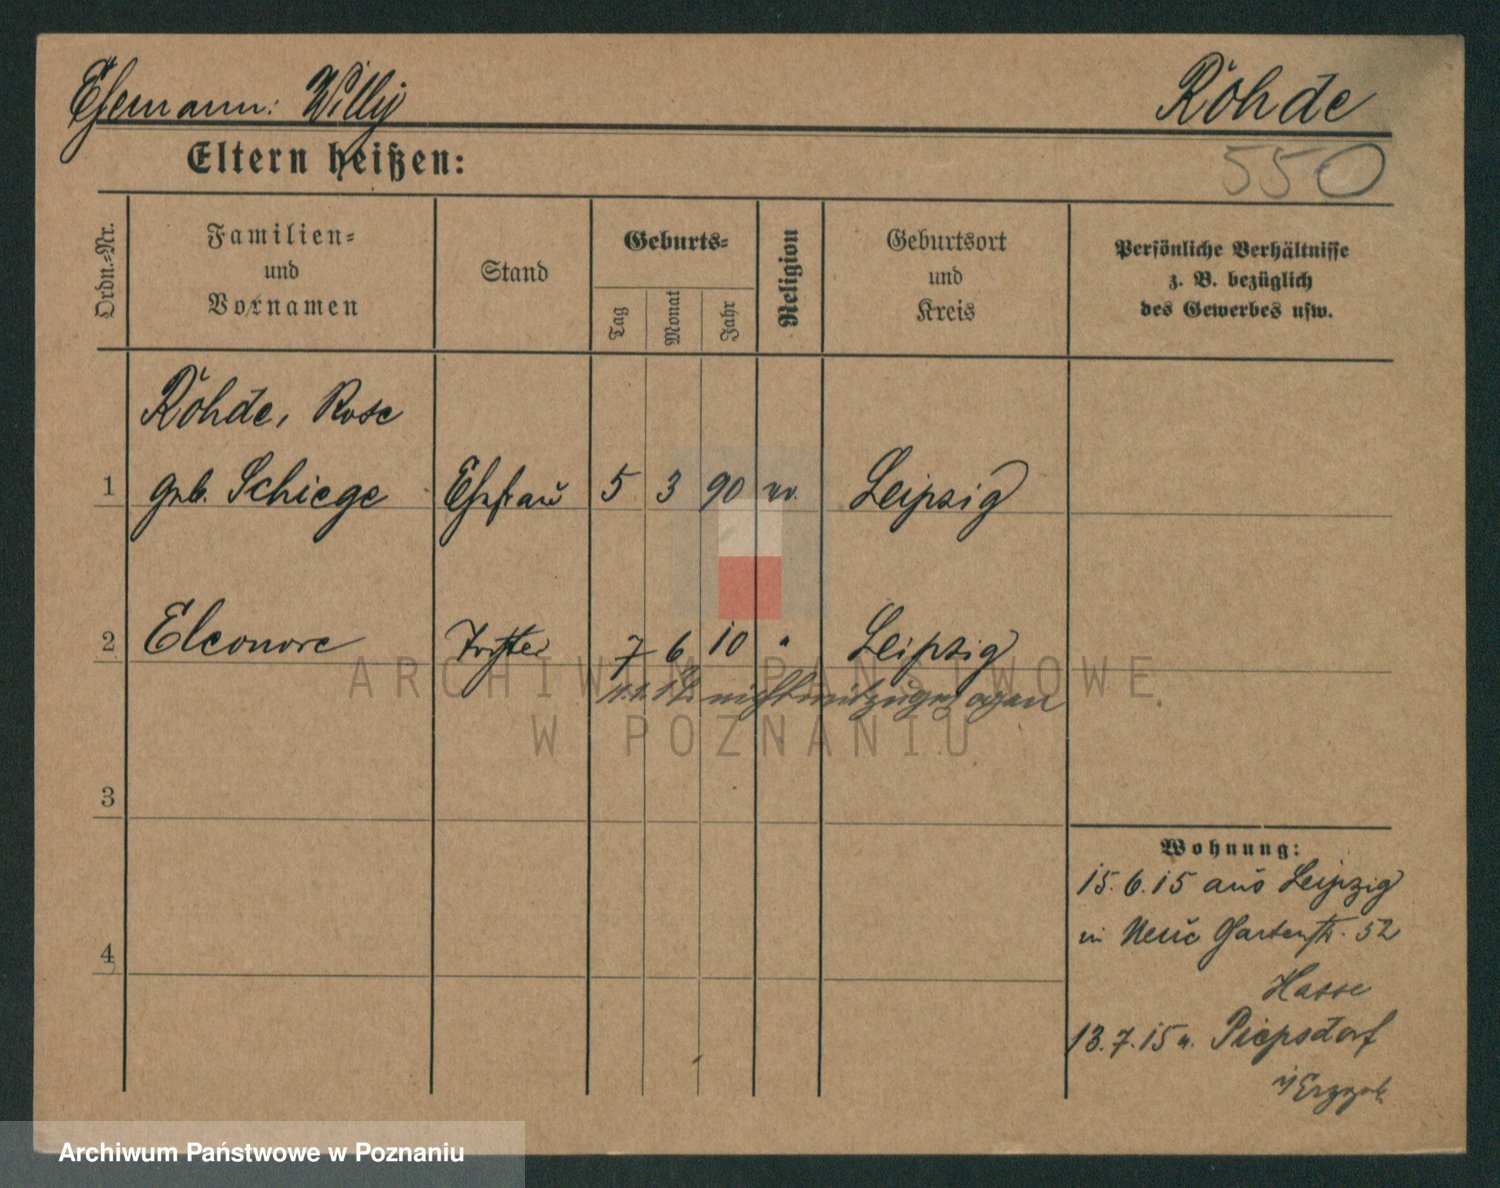 Ehemann: Willy Röhde
Eltern heißen:
550
Ordn.-Nr.
Familien-
und
Vornamen
Stand
Geburts-
Tag
Monat
Jahr
Religion
Geburtsort
und
Kreis
Persönliche Verhältnisse
z. B. bezüglich
des Gewerbes usw.
Röhde, Rose
1 geb. Schiege Ehefrau 5 3 90 ev. Leipzig
2 Eleonore Tochter 7 6 10 " Leipzig
nicht mitzugezogen
3
4
Wohnung:
15.6.15 aus Leipzig
in Neue Gartenstr. 52
Hasse
13.7.15 n. Piepsdorf
i/Erzgeb.
ARCHIWUM PAŃSTWOWE
W POZNANIU
Archiwum Państwowe w Poznaniu